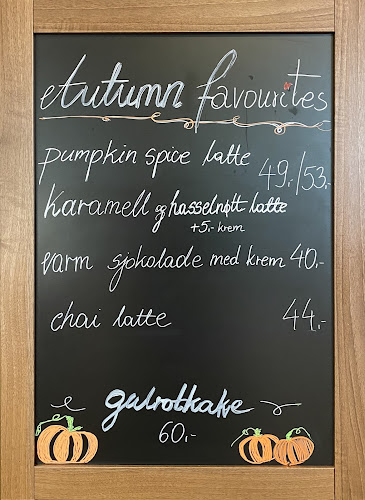 Autumn favourites
pumpkin spice latte 49,-/53,-
karamell og hasselnøtt latte
+5,- krem
varm sjokolade med krem 40,-
chai latte 44,-
gulrotkake
60,-